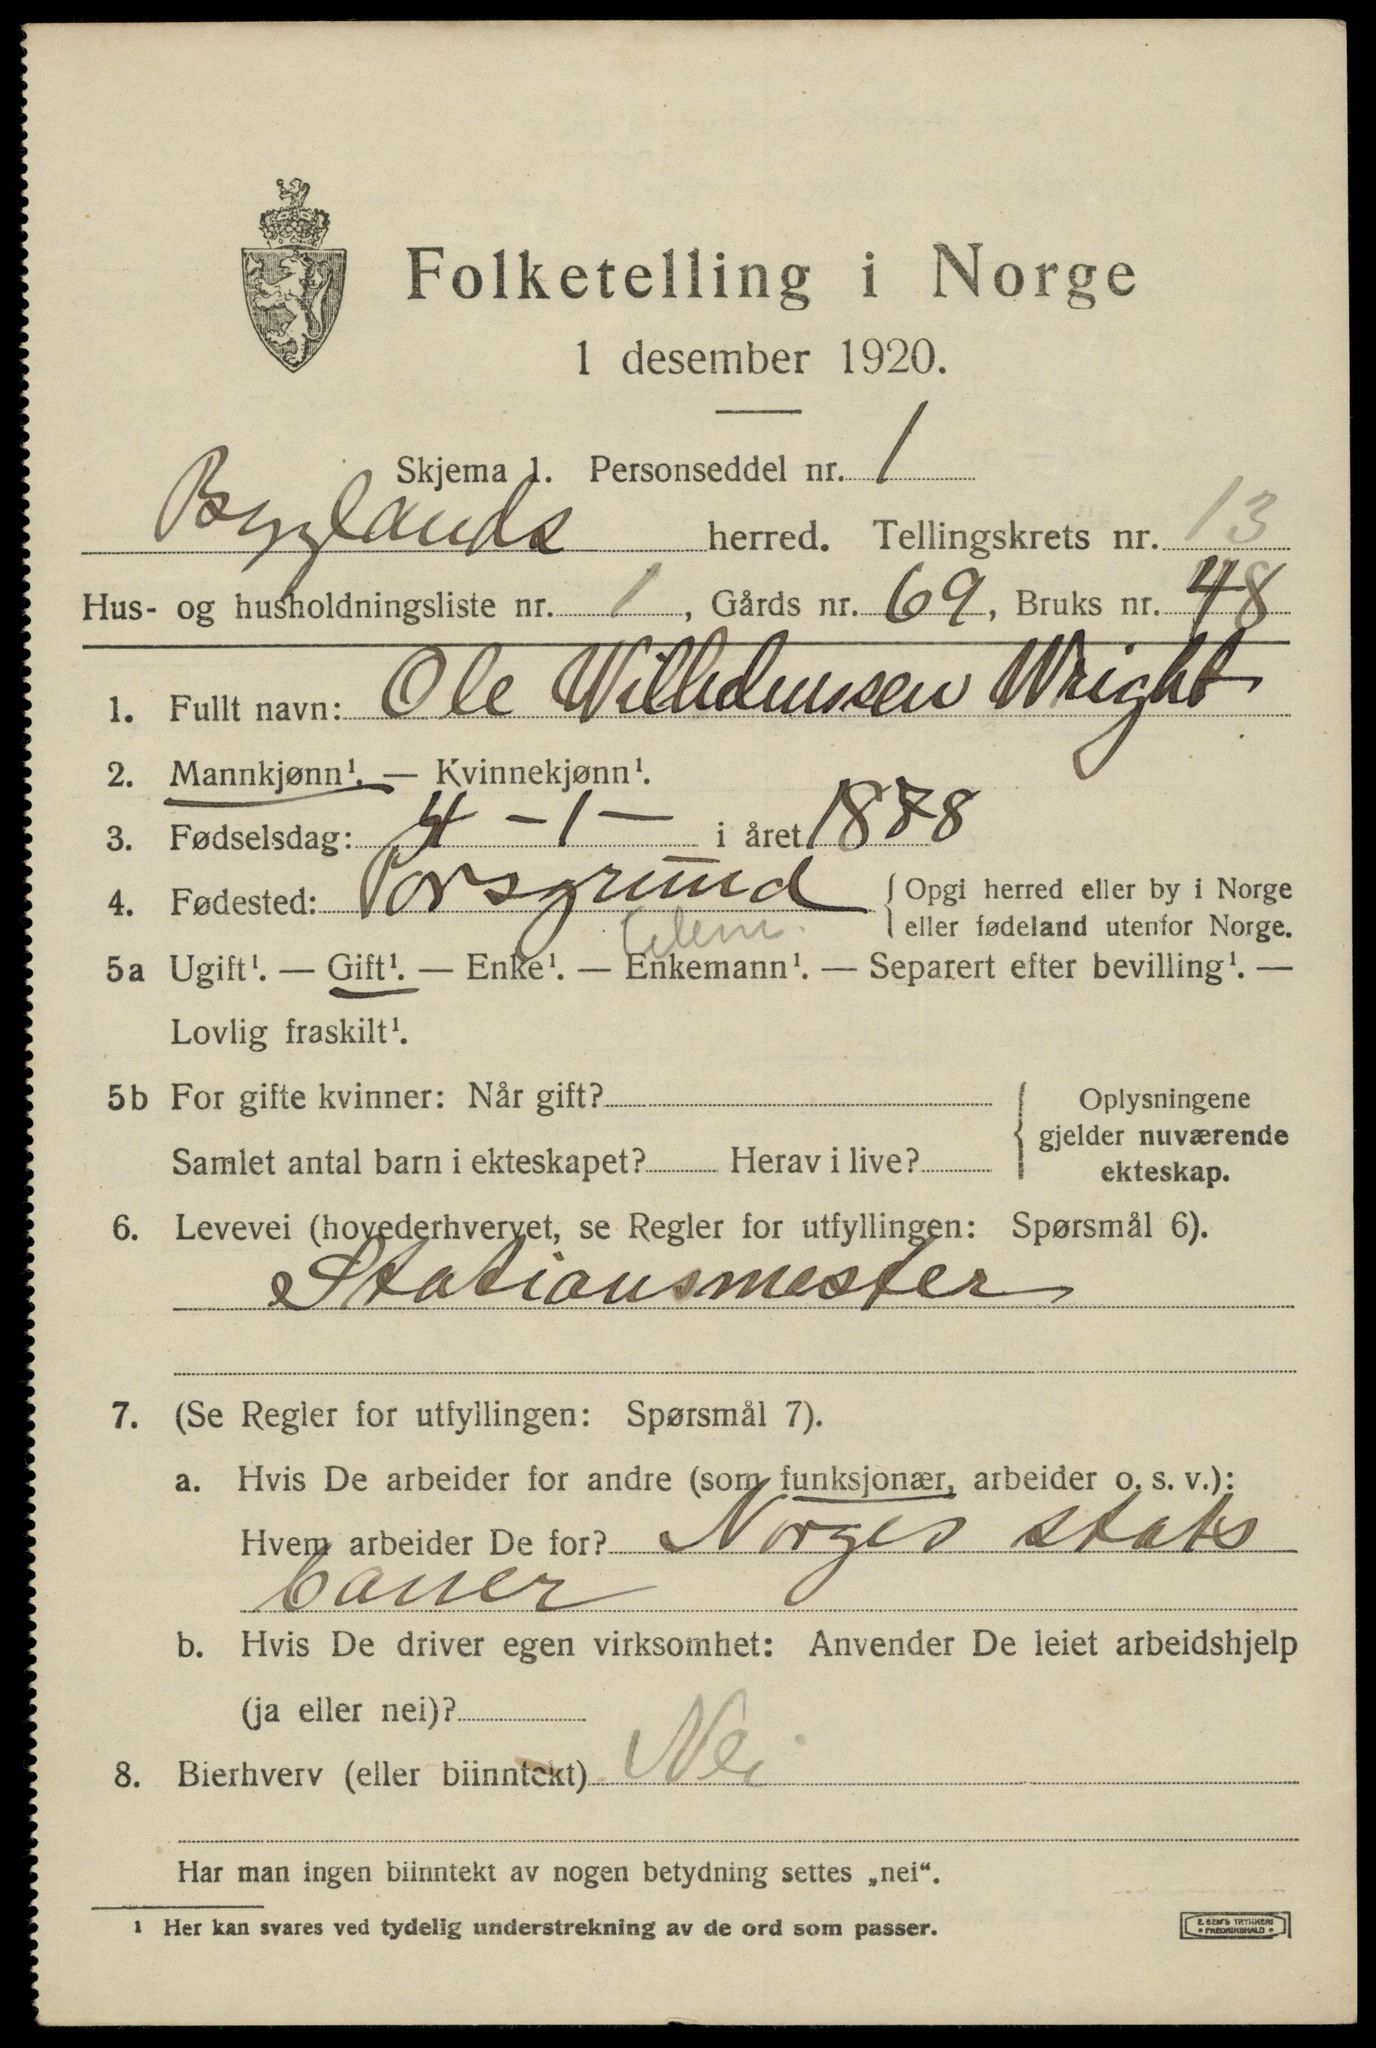 Folketelling i Norge
1 desember 1920.
Skjema 1. Personseddel nr. 1
Byglands herred. Tellingskrets nr. 13
Hus- og husholdningsliste nr. 1, Gårds nr. 69, Bruks nr. 48
1. Fullt navn: Ole Wilhelmssen Wright
2. Mannkjønn¹. — Kvinnekjønn¹.
3. Fødselsdag: 4 - 1 - i året 1878
4. Fødested: Porsgrund { Opgi herred eller by i Norge
eller fødeland utenfor Norge.
5a Ugift¹. — Gift¹. — Enke¹. — Enkemann¹. — Separert efter bevilling¹. —
Lovlig fraskilt¹.
5b For gifte kvinner: Når gift?
Samlet antal barn i ekteskapet? Herav i live?
Oplysningene
gjelder nuværende
ekteskap.
6. Levevei (hovederhvervet, se Regler for utfyllingen: Spørsmål 6).
Stationsmester
7. (Se Regler for utfyllingen: Spørsmål 7).
a. Hvis De arbeider for andre (som funksjonær, arbeider o. s. v.):
Hvem arbeider De for? Norges stats
baner
b. Hvis De driver egen virksomhet: Anvender De leiet arbeidshjelp
(ja eller nei)?
8. Bierhverv (eller biinntekt) Nei
Har man ingen biinntekt av nogen betydning settes „nei“.
¹ Her kan svares ved tydelig understrekning av de ord som passer.
E. SEM'S TRYKKERI
• FREDRIKSHALD •